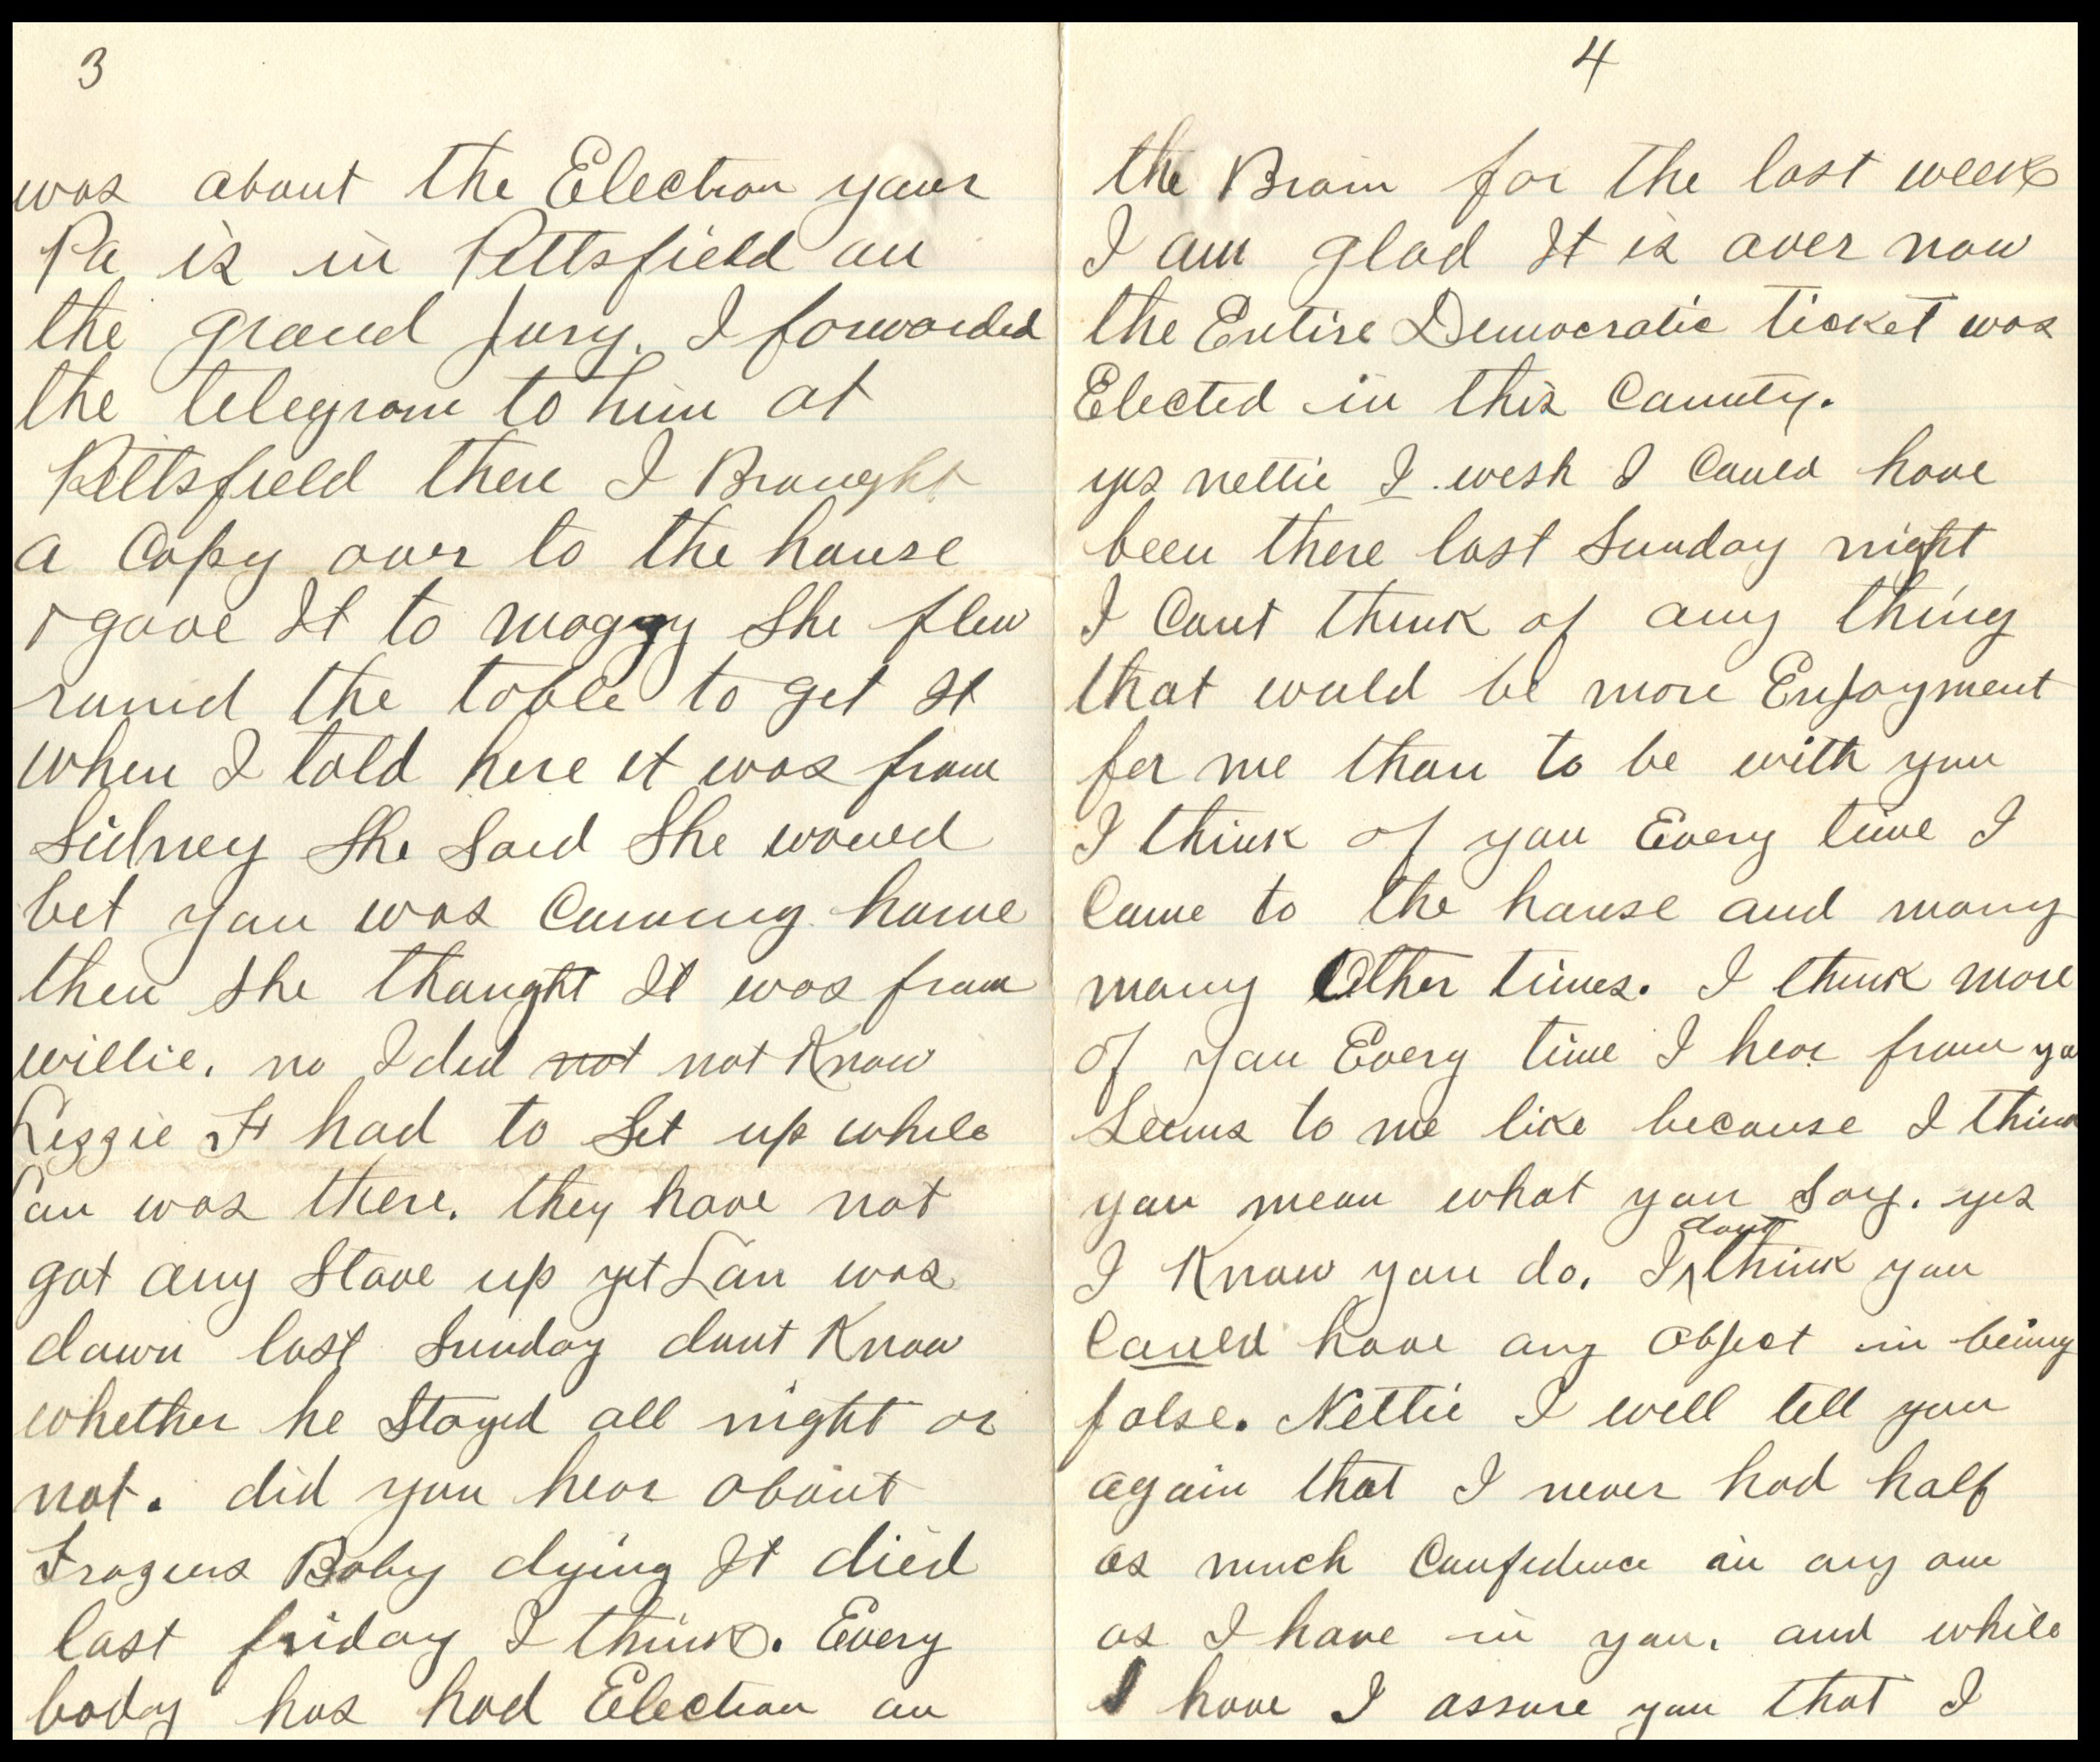 3
was about the Election your
Pa is in Pittsfield on
the grand Jury. I forwarded
the telegram to him at
Pittsfield then I Brought
a Copy over to the house
& gave It to maggy She flew
round the table to get It
when I told here it was from
Sidney She Said She would
bet you was Coming home
then she thought It was from
willie. no I did not not Know
Lizzie H had to Set up while
Lou was there. they have not
got any Stove up yet Lou was
down last Sunday dont Know
whether he Stayed all night or
not. did you hear about
Fragers Baby dying It died
last friday I think. Every
boddy has had Election on
4
the Brain for the last week
I am glad It is over now
the Entire Democratic ticket was
Elected in this County.
yes nettie I wish I Could have
been there last Sunday night
I Cant think of any thing
that would be more Enjoyment
for me than to be with you
I think of you Every time I
Come to the house and many
many Other times. I think more
of you Every time I hear from yo
Seems to me like because I think
you mean what you Say. yes
I Know you do. I dont think you
Could have any Object in being
false. Nettie I will tell you
again that I never had half
as much Confidence in any one
as I have in you. and while
I have I assure you that I